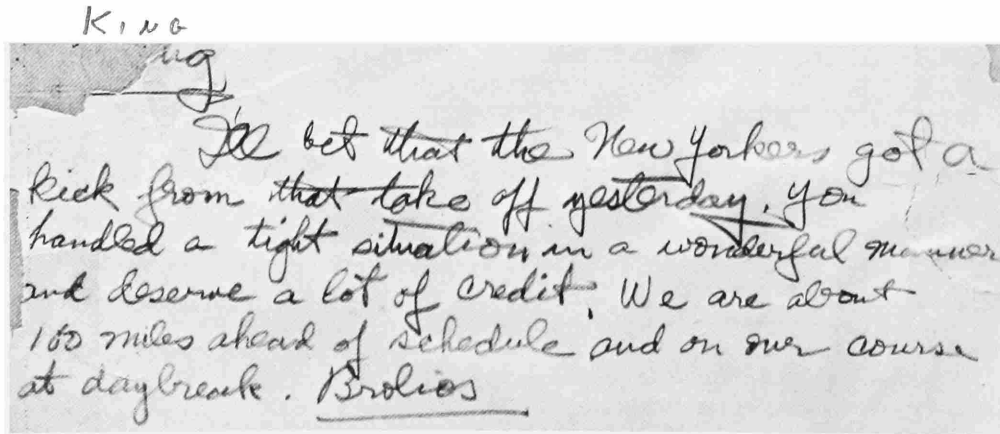 KING
ng
I'll bet that the New Yorkers got a
kick from that take off yesterday. You
handled a tight situation in a wonderful manner
and deserve a lot of credit. We are about
100 miles ahead of schedule and on our course
at daybreak. Brolios